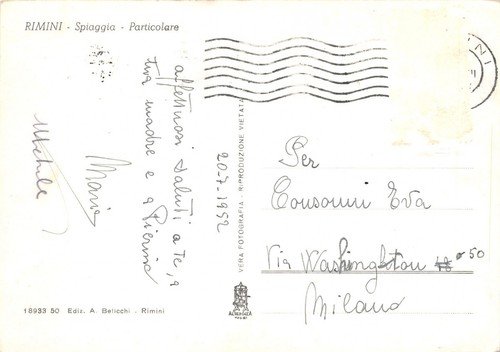 RIMINI - Spiaggia - Particolare
affettuosi saluti a te, a
tua madre e a Pierina
Maria
Michele
20-7-1952
VERA FOTOGRAFIA - RIPRODUZIONE VIETATA
Per
Eva
Via Washington 50
Milano
18933 50 Ediz. A. Beticchi - Rimini